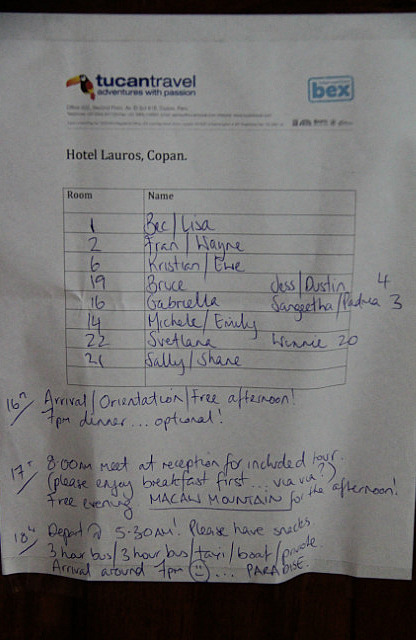 tucantravel
adventures with passion
bex
Hotel Lauros, Copan.
Room Name
1 Bec/Lisa
2 Fran/Wayne
6 Kristian/Ewe
19 Bruce Jess/Dustin 4
16 Gabriella Sangeetha/Padma 3
14 Michele/Emily
22 Svetlana Winnie 20
21 Sally/Shane
16th Arrival/Orientation/Free afternoon!
7pm dinner... optional!
17th 8:00AM meet at reception for included tour.
(please enjoy breakfast first... via via?)
Free evening MACAW MOUNTAIN for the afternoon!
18th Depart @ 5:30AM! Please have snacks
3 hour bus/3 hour bus/taxi/boat/private
Arrival around 7pm ... PARADISE.